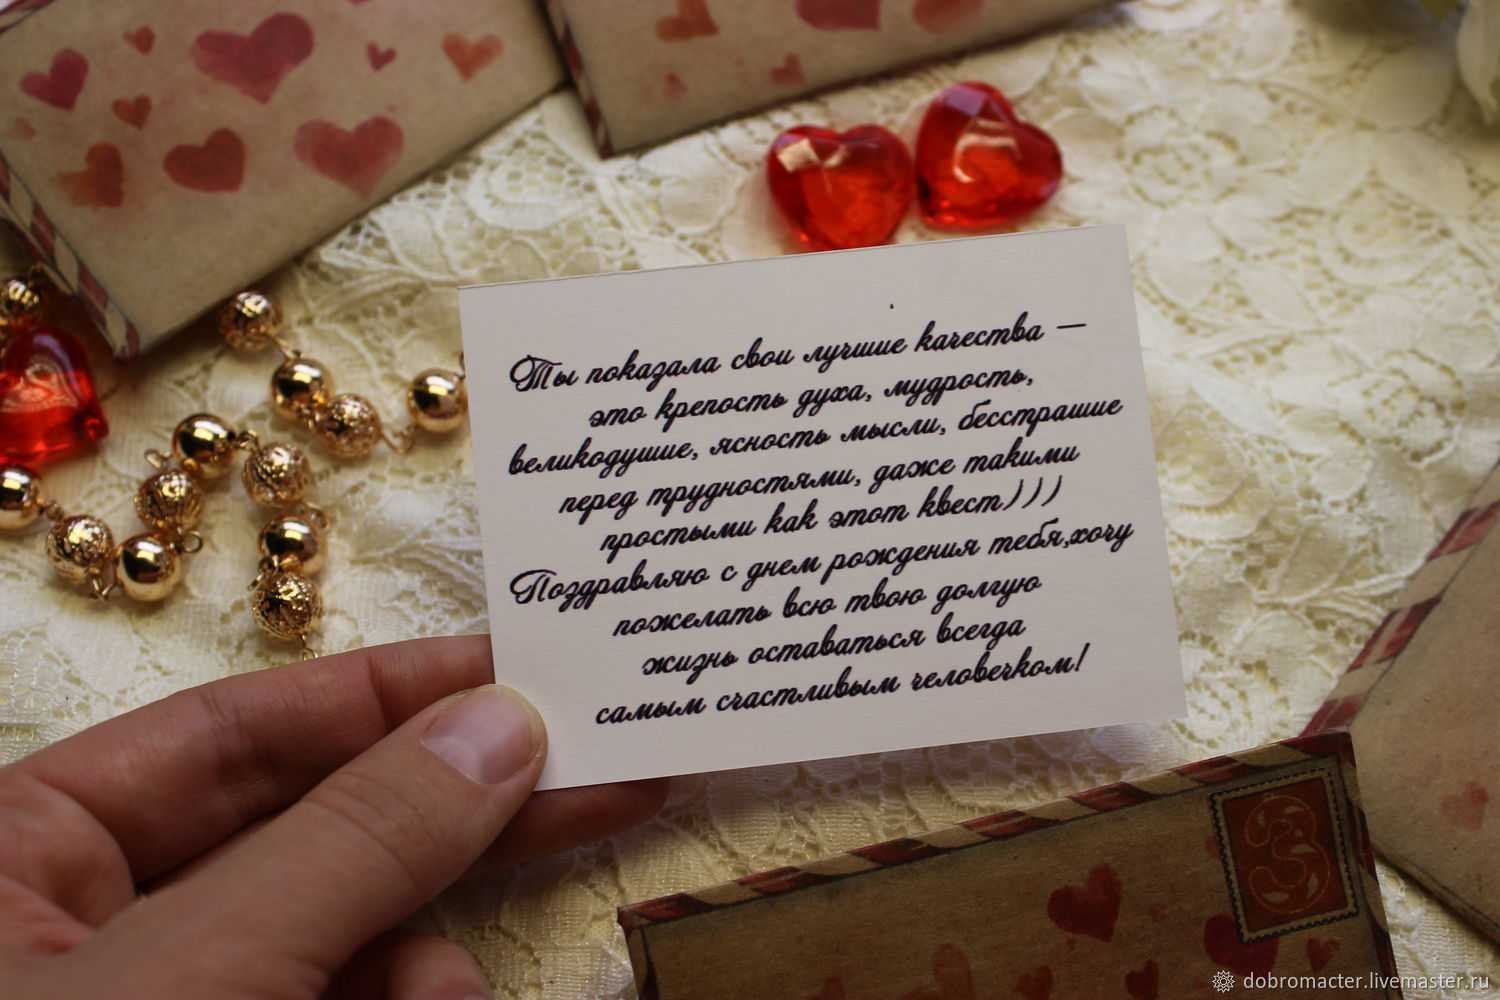 Ты показала свои лучшие качества —
это крепость духа, мудрость,
великодушие, ясность мысли, бесстрашие
перед трудностями, даже такими
простыми как этот квест)))
Поздравляю с днем рождения тебя,хочу
пожелать всю твою долгую
жизнь оставаться всегда
самым счастливым человечком!
3
dobromacter.livemaster.ru